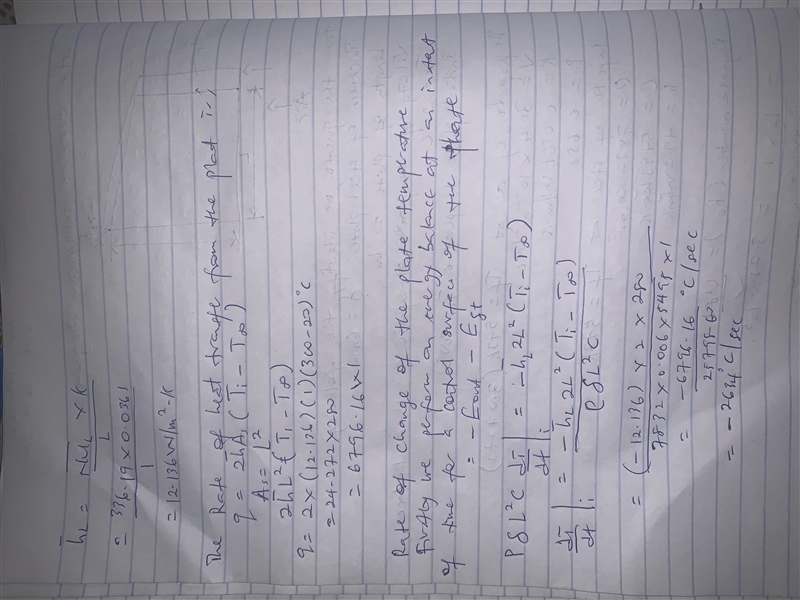 h̄L = N̄uL × K
L
= 336.19 × 0.0361
1
= 12.136 W/m²-K
The Rate of heat transfer from the plat is;
q = 2h̄As (Ti - T∞)
As = L²
2h̄L² (Ti - T∞)
q = 2 × (12.136) (1) (300-20)°C
= 24.272 × 280
= 6796.16 W
Rate of change of the plate temperature
Firstly we perform an energy balance at an instat
of time for a control surface of the plate
= -Eout = Est
ρδL²C dT/dt |i = -h̄L 2L² (Ti - T∞)
dT/dt |i = -h̄L 2L² (Ti - T∞)
ρδL²C
= (-12.136) × 2 × 280
7832 × 0.006 × 549 × 1
= -6796.16 °C/sec
25798.60
= -0.2634°C/sec